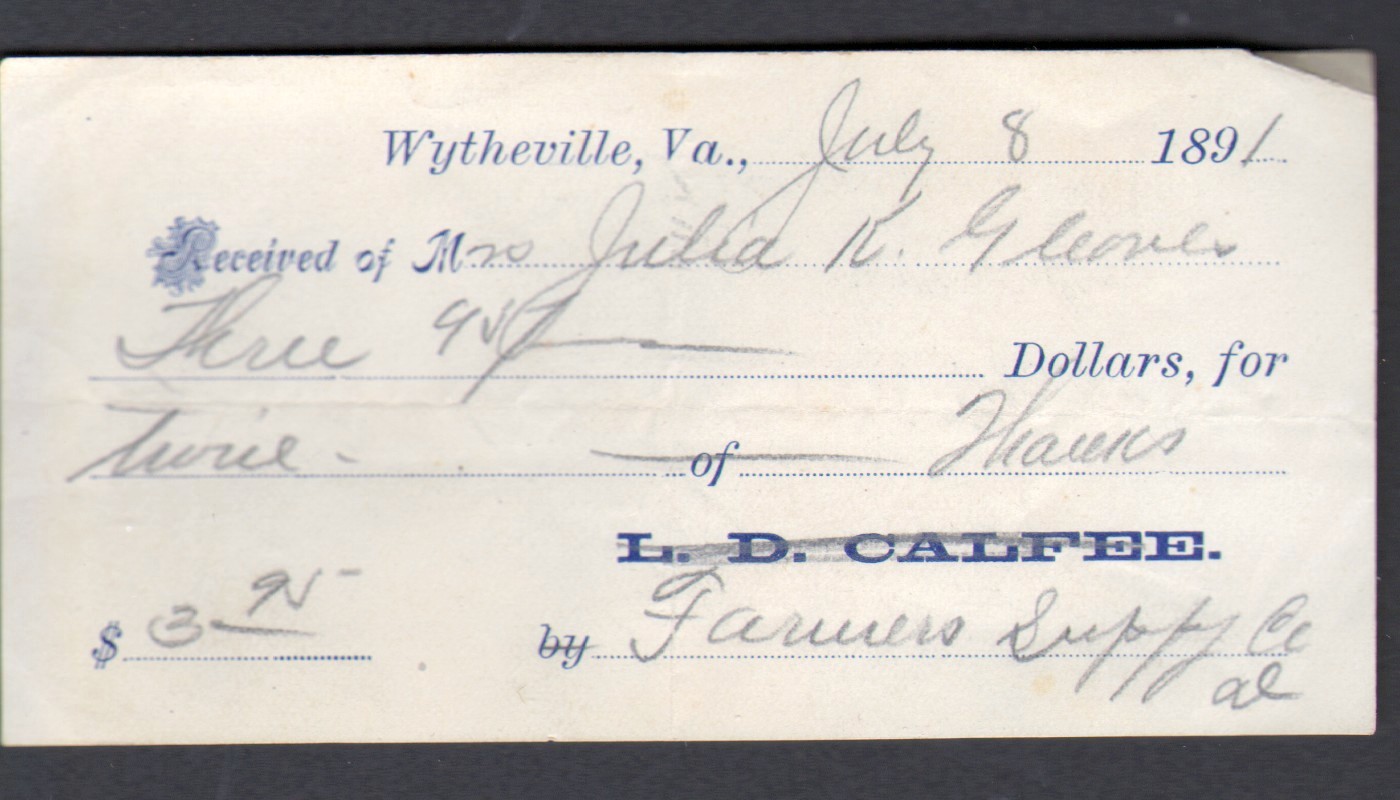 Wytheville, Va., July 8 1891
Received of Mrs Julia K. Gleaves
Three 95/ Dollars, for
twine - of Thanks
L. D. CALFEE.
$ 3 95 by Farmers Supply Co